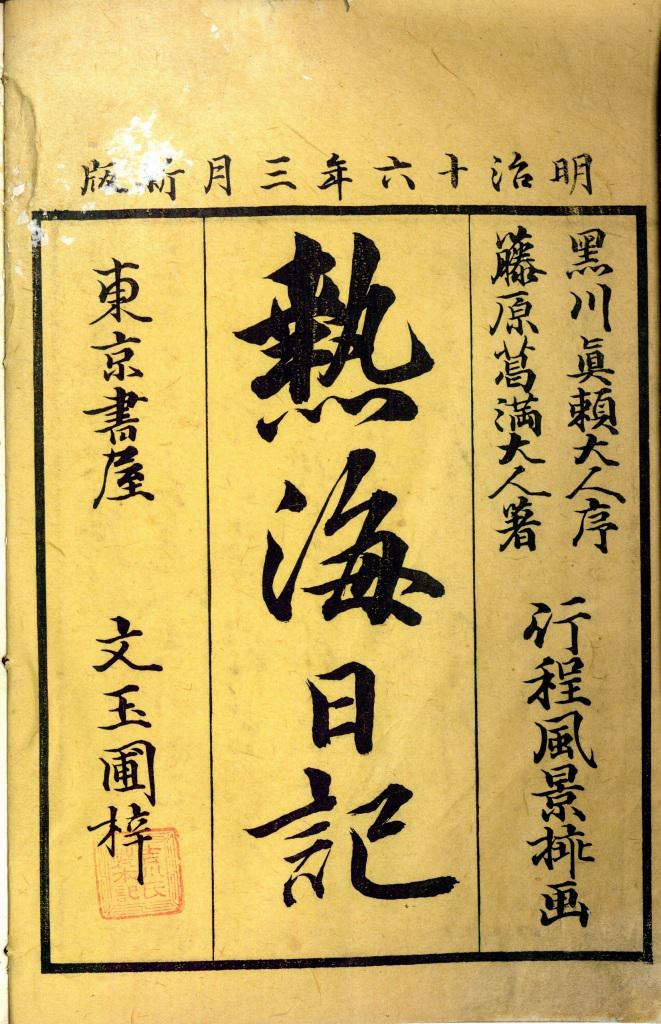 明治十六年三月新版
黑川眞賴大人序
藤原葛満大人著
行程風景揷画
熱海日記
東京書屋
文玉圃梓